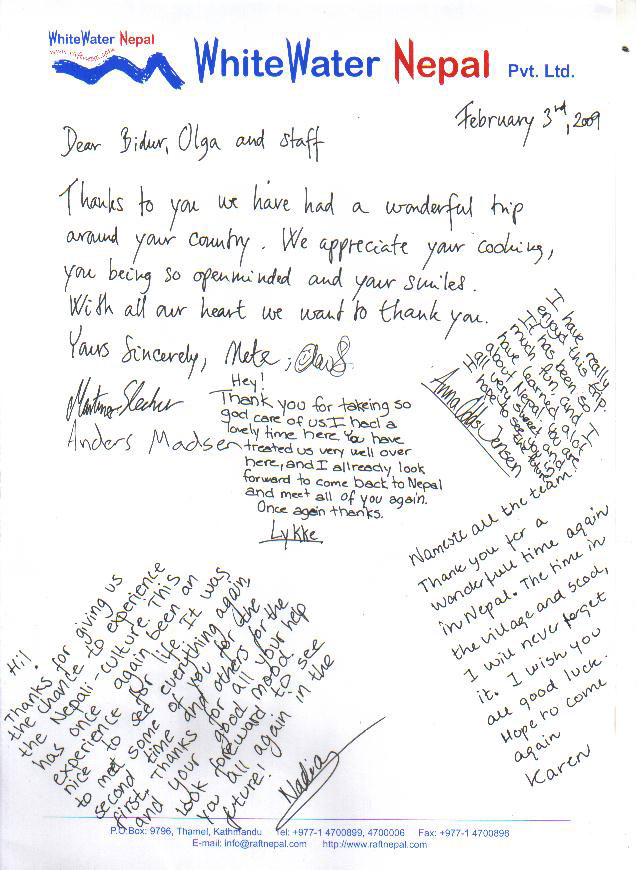 WhiteWater Nepal
www.raftnepal.com
WhiteWater Nepal Pvt. Ltd.
February 3rd, 2009
Dear Bidur, Olga and staff
Thanks to you we have had a wonderful trip
around your country. We appreciate your cooking,
you being so openminded and your smiles.
With all our heart we want to thank you.
Yours Sincerely, Mete,
Anders Madsen
Hey!
Thank you for takeing so
god care of us. I had a
lovely time here. You have
treated us very well over
here, and I allready look
forward to come back to Nepal
and meet all of you again.
Once again thanks.
Lykke
I have really
enjoyed this trip.
It has been so
much fun, and I
have learned alot
about Nepal. You are
all very sweet and
hope to see you in
the future
Anna Jensen
Namaste all the team!
Thank you for a
wonderfull time again
in Nepal. The time in
the village and scool,
I will never forget
it. I wish you
all good luck.
Hope to come
again
Karen
Hi!
Thanks for giving us
the chance to experience
the Nepali-culture. This
has once again been an
experience for life. It was
nice to see everything again,
to meet some of you for the
second time and others for the
first. Thanks for all your help
and your good mood.
Look foreward to see
you all again in the
future!
Nadia
P.O.Box: 9796, Thamel, Kathmandu Tel: +977-1 4700899, 4700006 Fax: +977-1 4700896
E-mail: info@raftnepal.com http://www.raftnepal.com